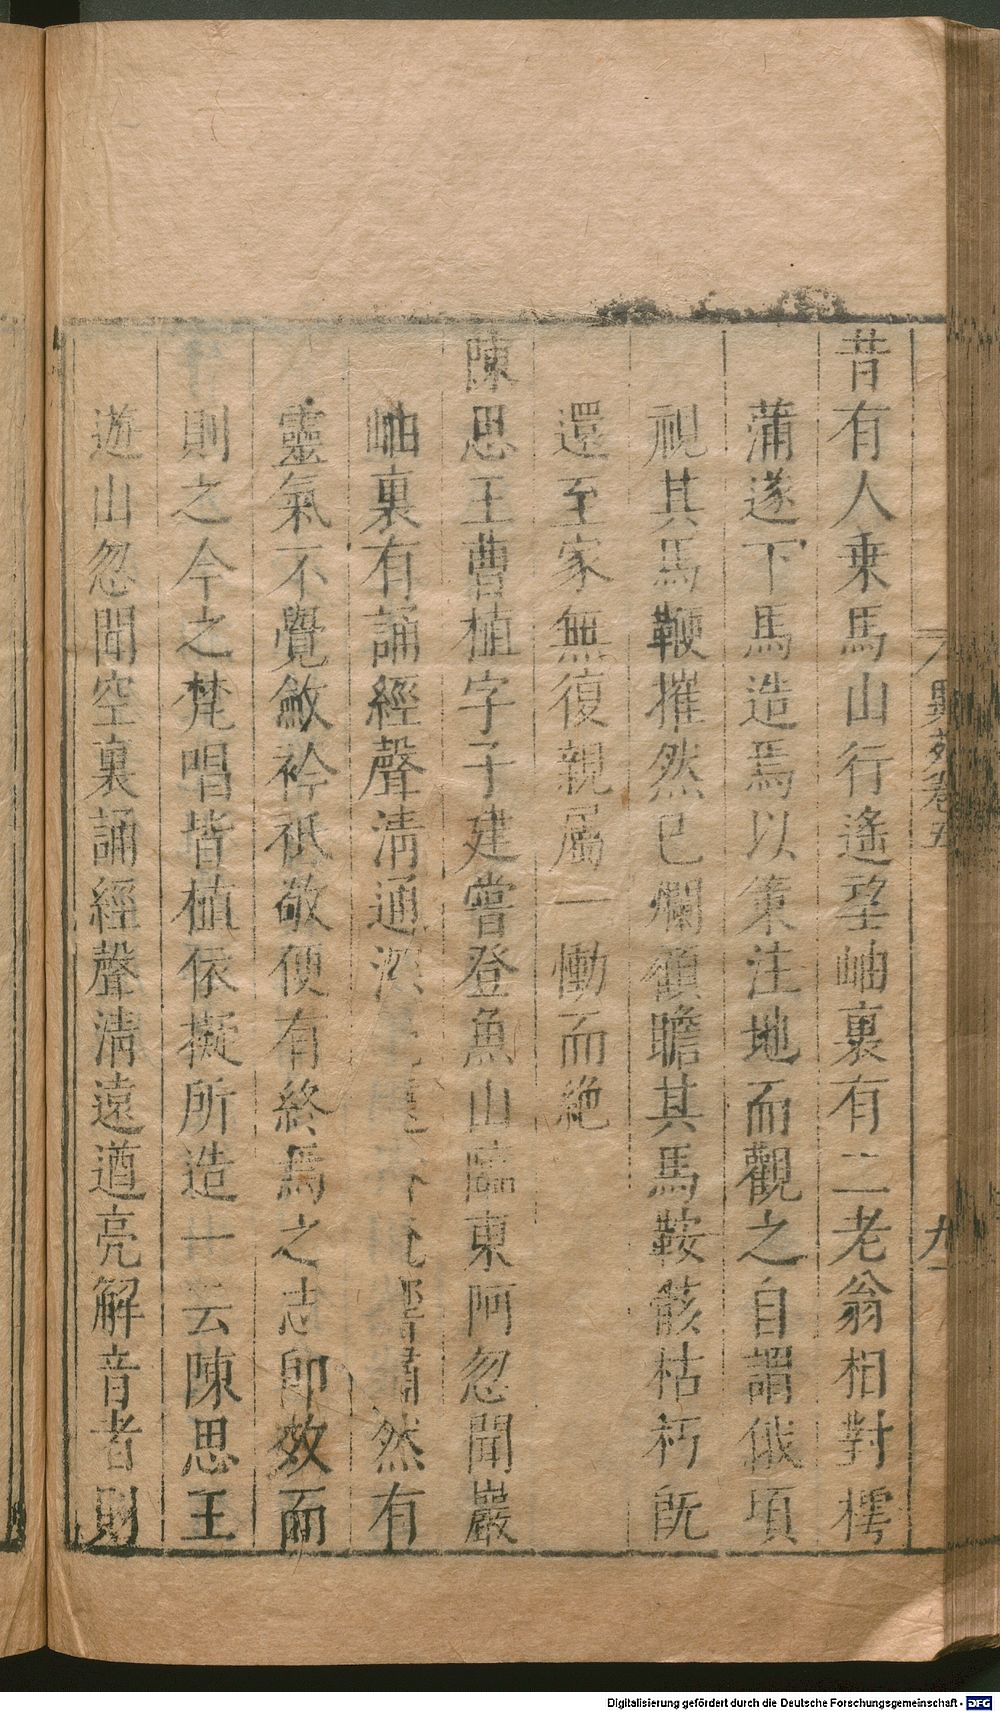 異苑卷五
九
昔有人乗馬山行遙望岫裏有二老翁相對樗
蒲遂下馬造焉以策注地而觀之自謂俄頃
視其馬鞭摧然已爛顧瞻其馬鞍骸枯朽旣
還至家無復親屬一慟而絶
陳思王曹植字子建嘗登魚山臨東阿忽聞巖
岫裏有誦經聲清通深谷流響肅然有
靈氣不覺斂衿祇敬便有終焉之志卽效而
則之今之梵唱皆植依擬所造一云陳思王
遊山忽聞空裏誦經聲清遠遒亮解音者則
Digitalisierung gefördert durch die Deutsche Forschungsgemeinschaft - DFG